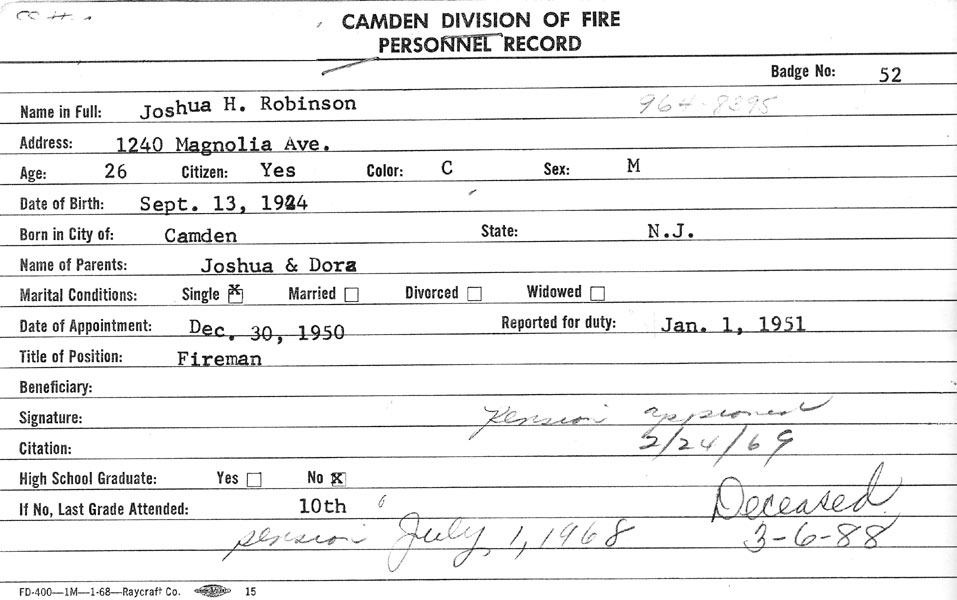 CAMDEN DIVISION OF FIRE
PERSONNEL RECORD
Badge No: 52
Name in Full: Joshua H. Robinson 964-8395
Address: 1240 Magnolia Ave.
Age: 26 Citizen: Yes Color: C Sex: M
Date of Birth: Sept. 13, 1924
Born in City of: Camden State: N.J.
Name of Parents: Joshua & Dora
Marital Conditions: Single x Married Divorced Widowed
Date of Appointment: Dec. 30, 1950 Reported for duty: Jan. 1, 1951
Title of Position: Fireman
Beneficiary:
Signature: Pension approved
Citation: 2/24/69
High School Graduate: Yes No x
If No, Last Grade Attended: 10th Deceased
pension July 1, 1968 3-6-88
FD-400—1M—1-68—Raycraft Co. 15